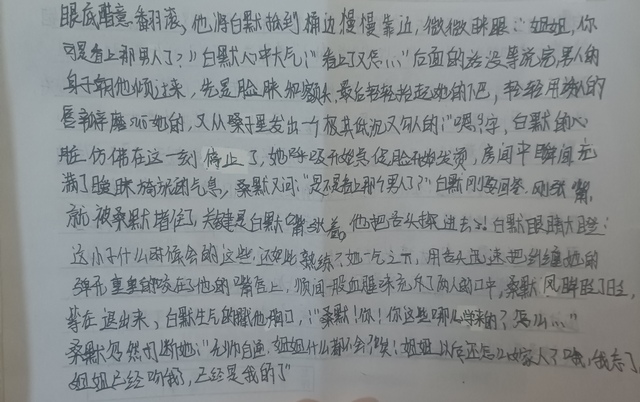 眼底醋意翻滚，他将白默抬到桶边慢慢靠近，微微眯眼："姐姐，你
可是看上那男人了？"白默心中大气："看上了又怎…"后面的话没等说完，男人的
身子朝他倾过来，先是脸 额头，最后轻轻抬起她的下巴，轻轻用诱人的
唇 磨 她的，又从嗓子里发出一个极其低沉又勾人的："嗯"字，白默的心
脏仿佛在这一刻停止了，她呼吸开始急促脸开始发烫，房间中瞬间充
满了暧昧 的气息，桑默又问："是不是看上那个男人了？"白默刚要回答，刚张嘴，
就被桑默堵住了，关键是白默嘴张着，他把舌头探进去了！白默眼睛大瞪：
这小子什么时候会的这些，还如此熟练？她一气之下，用舌头迅速把纠缠她的
重重的咬在了他的嘴唇上，顺间一股血腥味充斥了两人的口中，桑默
等在退出来，白默生气的 他胸口，"桑默！你！你这些哪儿学来的？怎么…"
桑默忽然打断她："无师自通，姐姐什么都不会了唉！姐姐以后还怎么嫁人了哦，我忘了，
姐姐已经吻我了，已经是我的了"